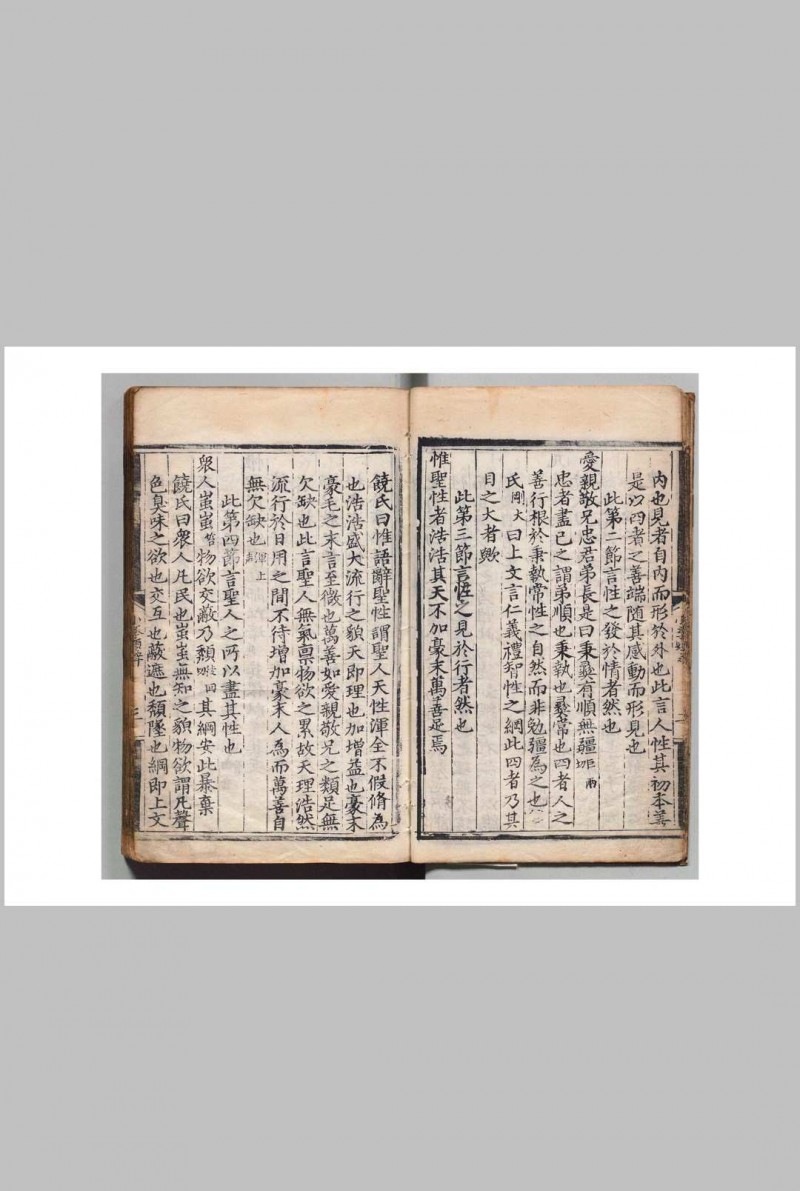 內也見者自內而形於外也此言人性其初本善
是以四者之善端隨其感動而形見也
此第二節言性之發於情者然也
愛親敬兄忠君弟長是曰秉彝有順無彊
忠者盡己之謂弟順也秉執也彝常也四者人之
善行根於秉執常性之自然而非勉彊為之也
氏剛大曰上文言仁義禮智性之綱此四者乃其
目之大者歟
此第三節言性之見於行者然也
惟聖性者浩浩其天不加豪末萬善足焉
饒氏曰惟語辭聖性謂聖人天性渾全不假脩為
也浩浩盛大流行之貌天即理也加增益也豪末
豪毛之末言至微也萬善如愛親敬兄之類足無
欠缺也此言聖人無氣稟物欲之累故天理浩然
流行於日用之間不待增加豪末人為而萬善自
無欠缺也
此第四節言聖人之所以盡其性也
眾人蚩蚩物欲交蔽乃頹其綱安此暴棄
饒氏曰眾人凡民也蚩蚩無知之貌物欲謂凡聲
色臭味之欲也交互也蔽遮也頹墜也綱即上文